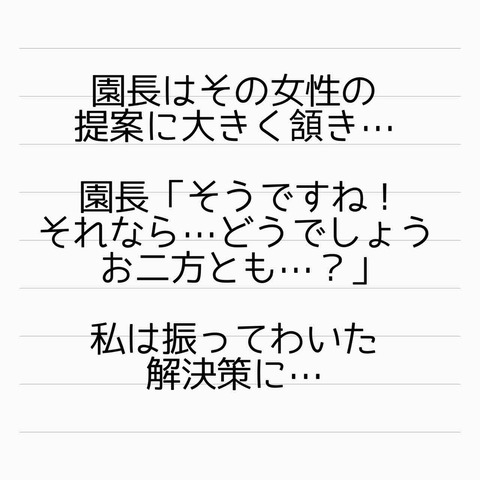 園長はその女性の
提案に大きく頷き…
園長「そうですね！
それなら…どうでしょう
お二方とも…？」
私は振ってわいた
解決策に…